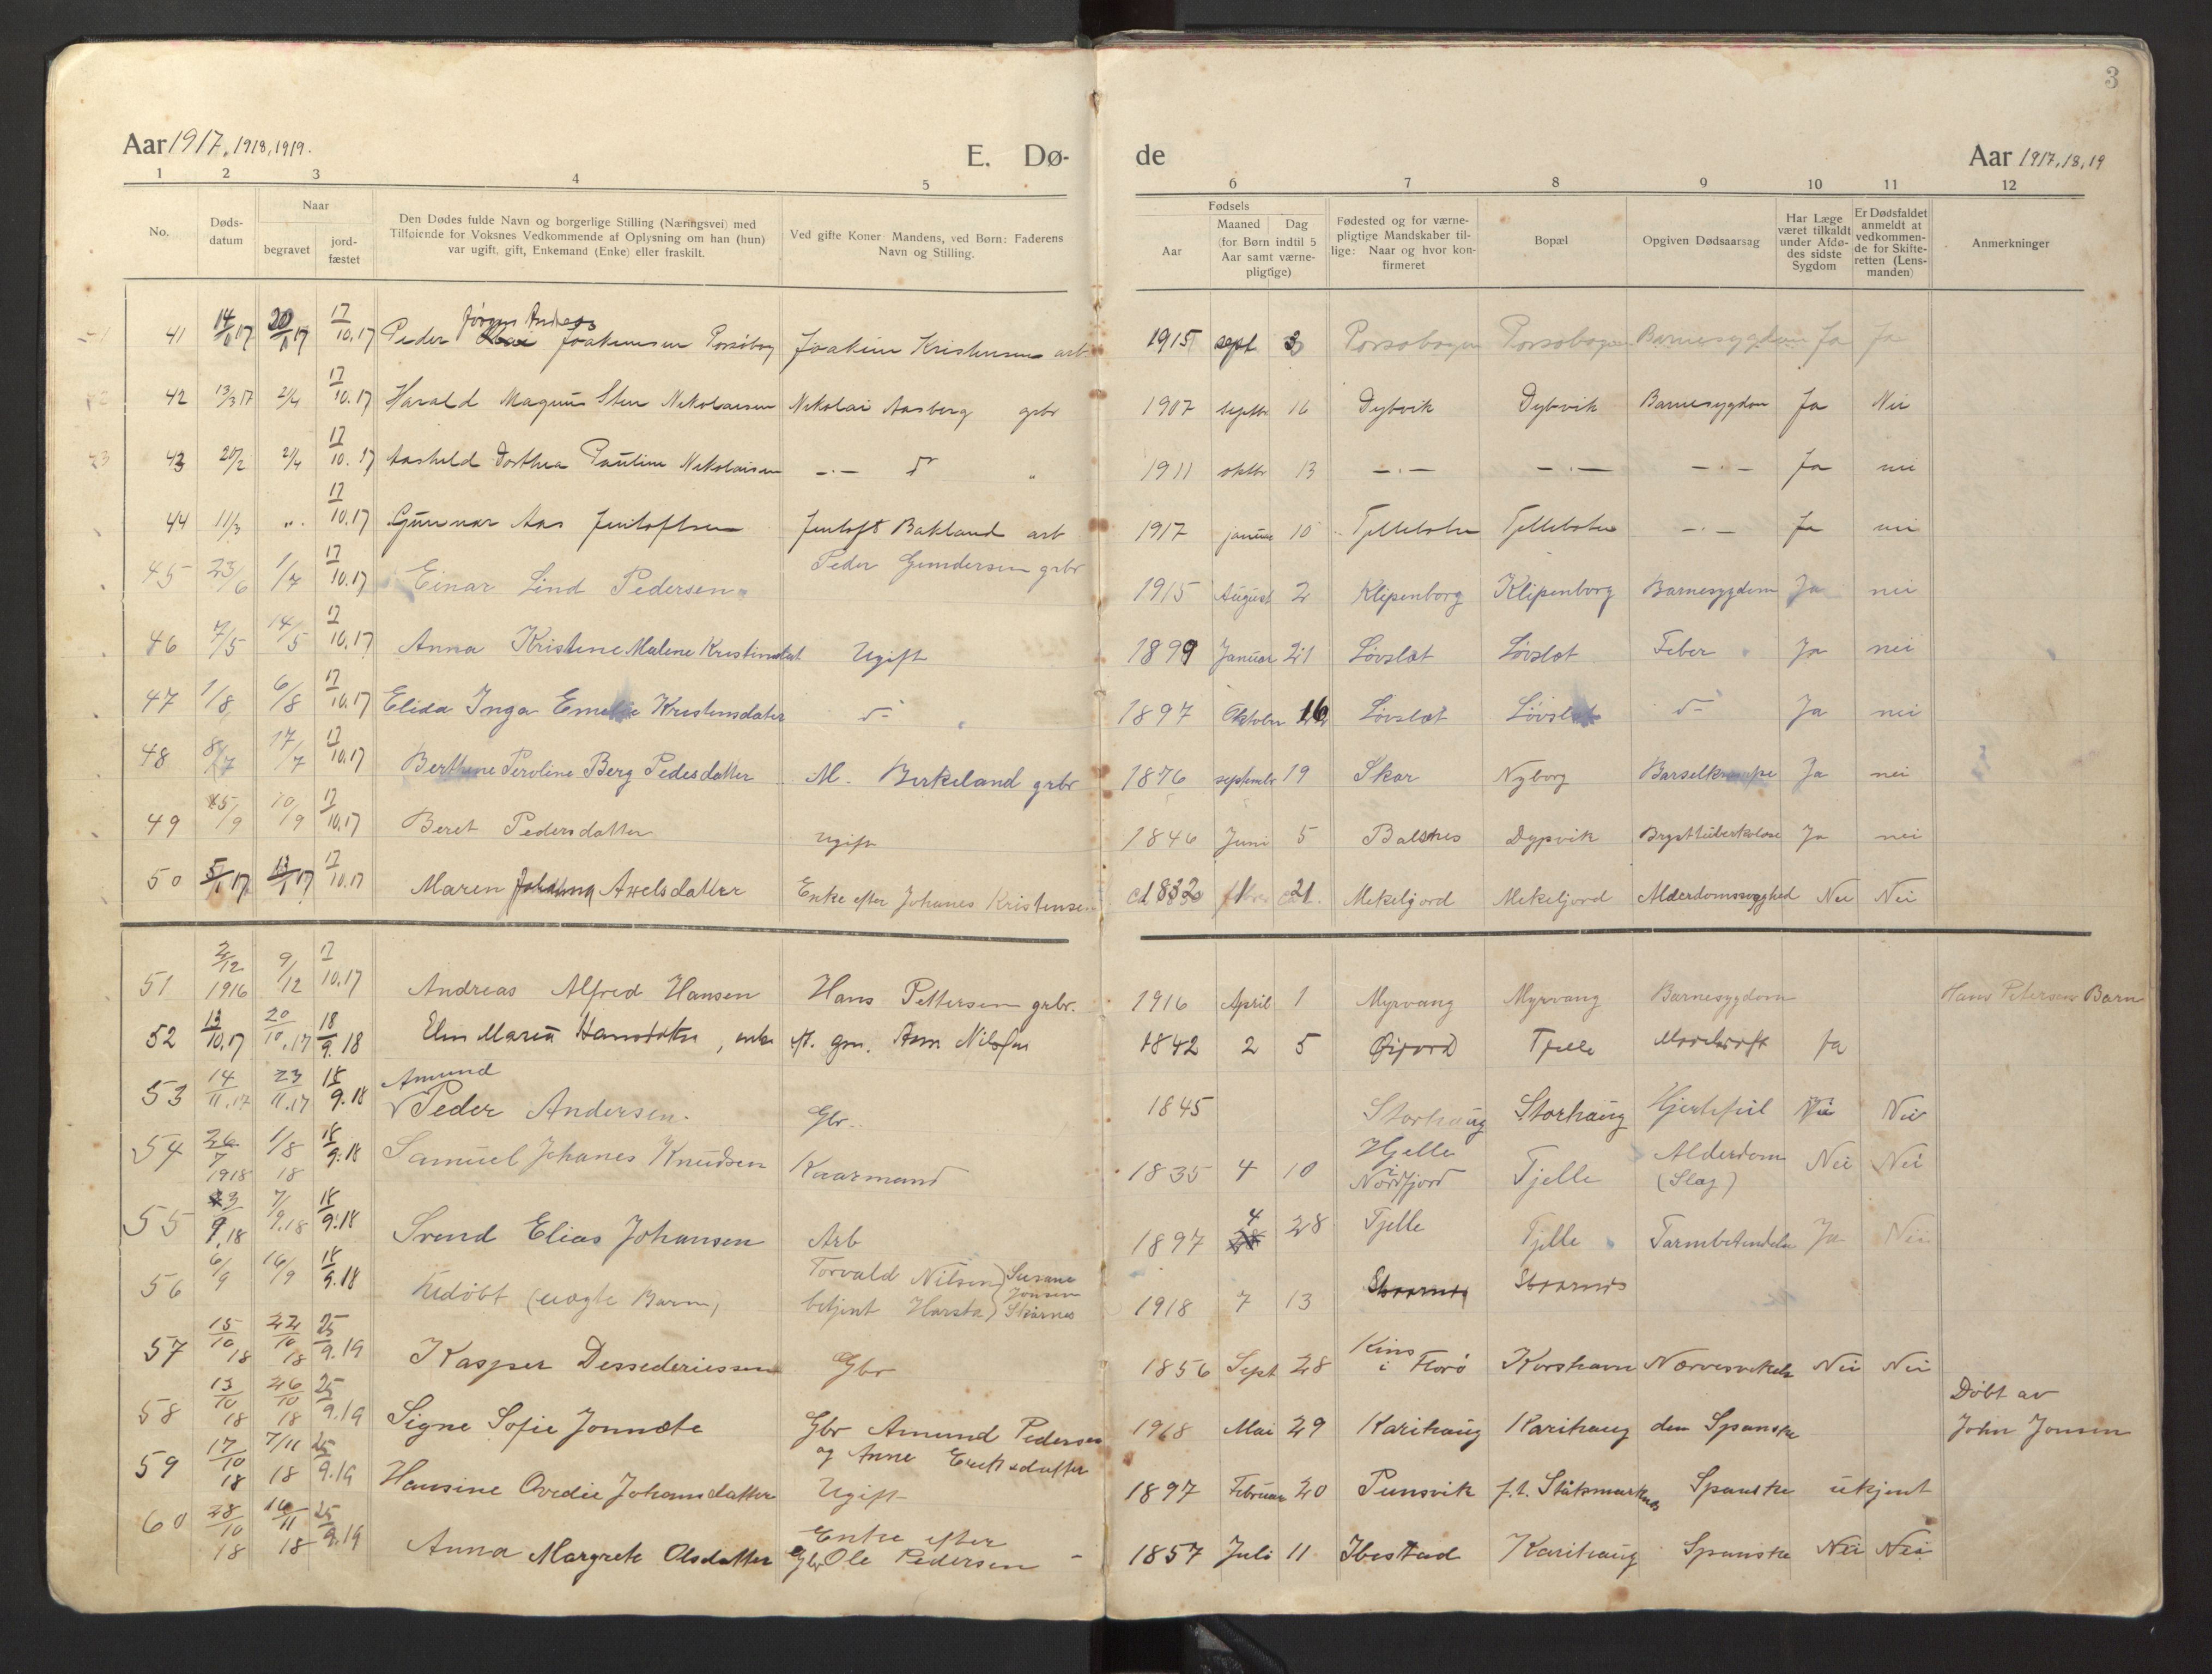 3
Aar 1917, 1918, 1919.
E. Dø-
de
Aar 1917, 18, 19
1 2 3 4 5 6 7 8 9 10 11 12
No.
Døds-
datum
Naar
begravet
jord-
fæstet
Den Dødes fulde Navn og borgerlige Stilling (Næringsvei) med
Tilføiende for Voksnes Vedkommende af Oplysning om han (hun)
var ugift, gift, Enkemand (Enke) eller fraskilt.
Ved gifte Koner: Mandens, ved Børn: Faderens
Navn og Stilling.
Fødsels
Aar
Maaned Dag
(for Børn indtil 5
Aar samt værne-
pligtige)
Fødested og for værne-
pligtige Mandskaber til-
lige: Naar og hvor kon-
firmeret
Bopæl
Opgiven Dødsaarsag
Har Læge
været tilkaldt
under Afdø-
des sidste
Sygdom
Er Dødsfaldet
anmeldt at
vedkommen-
de for Skifte-
retten (Lens-
manden)
Anmerkninger
Jørgen Andreas
41 14/11 17 20/11 17 17/10.17 Peder Joakimsen Porsøbog Joakim Kristensen arb 1915 sept 3 Porsøbogen Porsøbogen Barnesygdom Ja Ja
42 13/3 17 2/4 17/10.17 Harald Magnus Sten Nikolaisen Nikolai Aasberg grbr 1907 septbr 16 Dybvik Dybvik Barnesygdom Ja Nei
43 20/2 2/4 17/10.17 Aashild Dorthea Pauline Nikolaisen -.- do " 1911 oktbr 13 -.- -.- -.- Ja nei
44 11/3 ". 17/10.17 Gunnar Aas Jentoftsen Jentoft Bakland arb 1917 januar 10 Tjellebotn Tjellebotn -.- Ja nei
45 23/6 1/7 17/10.17 Einar Lind Pedersen Peder Gundersen grbr 1915 August 2 Klipenborg Klipenborg Barnesygdom Ja nei
46 7/5 14/5 17/10.17 Anna Kristine Malene Kristinsdat Ugift 1899 Januar 21 Løvslæt Løvslæt Feber Ja nei
47 1/8 6/8 17/10.17 Elida Inga Emelie Kristensdater do 1897 Oktober 16 Løvslæt Løvslæt do Ja nei
48 8/7 17/7 17/10.17 Berthine Peroline Berg Pedersdatter M. Birkeland grbr 1876 september 19 Skar Nyborg Barselkrampe Ja nei
49 5/9 10/9 17/10.17 Beret Pedersdatter ugift 1846 Juni 5 Balsnes Dypvik Brysttuberkolose Ja nei
50 5/1 17 13/1 17 17/10.17 Maren Johanna Axelsdatter Enke efter Johanes Kristensen 1832 1 21. Mekeljord Mekeljord Alderdomssvaghed Nei Nei
51 2/12 1916 9/12 17/10.17 Andreas Alfred Hansen Hans Pettersen grbr. 1916 April 1 Myrvang Myrvang Barnesygdom Hans Petersens Barn
52 13/10.17 20/10.17 18/9.18 Elen Maria Hansdatter, enke eft. grn. Arn Nilsen 1842 2 5 Øijord Tjelle Ja
Amund
53 14/11.17 23/11.17 18/9.18 Peder Andersen. Gbr. 1845 Storhaug Storhaug Hjertefeil Nei Nei
54 26/7 1918 1/8 18 18/9.18 Samuel Johanes Knudsen Kaarmand 1835 4 10 Hjelle i Nordfjord Tjelle Alderdom (Slag) Nei Nei
55 3/9.18 7/9.18 18/9.18 Svend Elias Johansen Arb 1897 4 28 Tjelle Tjelle Tarmbetendelse Ja Nei
56 6/9 16/9 18/9.18 Udøbt (uægte Barn) Torvald Nilsen betjent Harsta) Susane Jonsen Skarnes 1918 7 13
57 15/10 18 22/10 18 25/9.19 Kasper Dessederiussen Gbr 1856 Sept 28 Kins i Florø Korshavn Nervesvekelse Nei Nei
58 13/10 18 26/10 18 25/9.19 Signe Sofie Jonnæte Gbr Amund Pedersen og Anne Eriksdatter 1918 Mai 29 Karihaug Karihaug den Spanske Døbt av John Jonsen
59 17/10 18 7/11 18 25/9.19 Hansine Ovedie Johansdatter Ugift 1897 Februar 20 Punsvik f.t. Statsmarknes Spanske ukjent
60 28/10 18 16/11 18 25/9.19 Anna Margrete Olsdatter Enke efter Gbr Ole Pedersen - 1857 Juli 11 Ibestad Karihaug Spanske Nei Nei